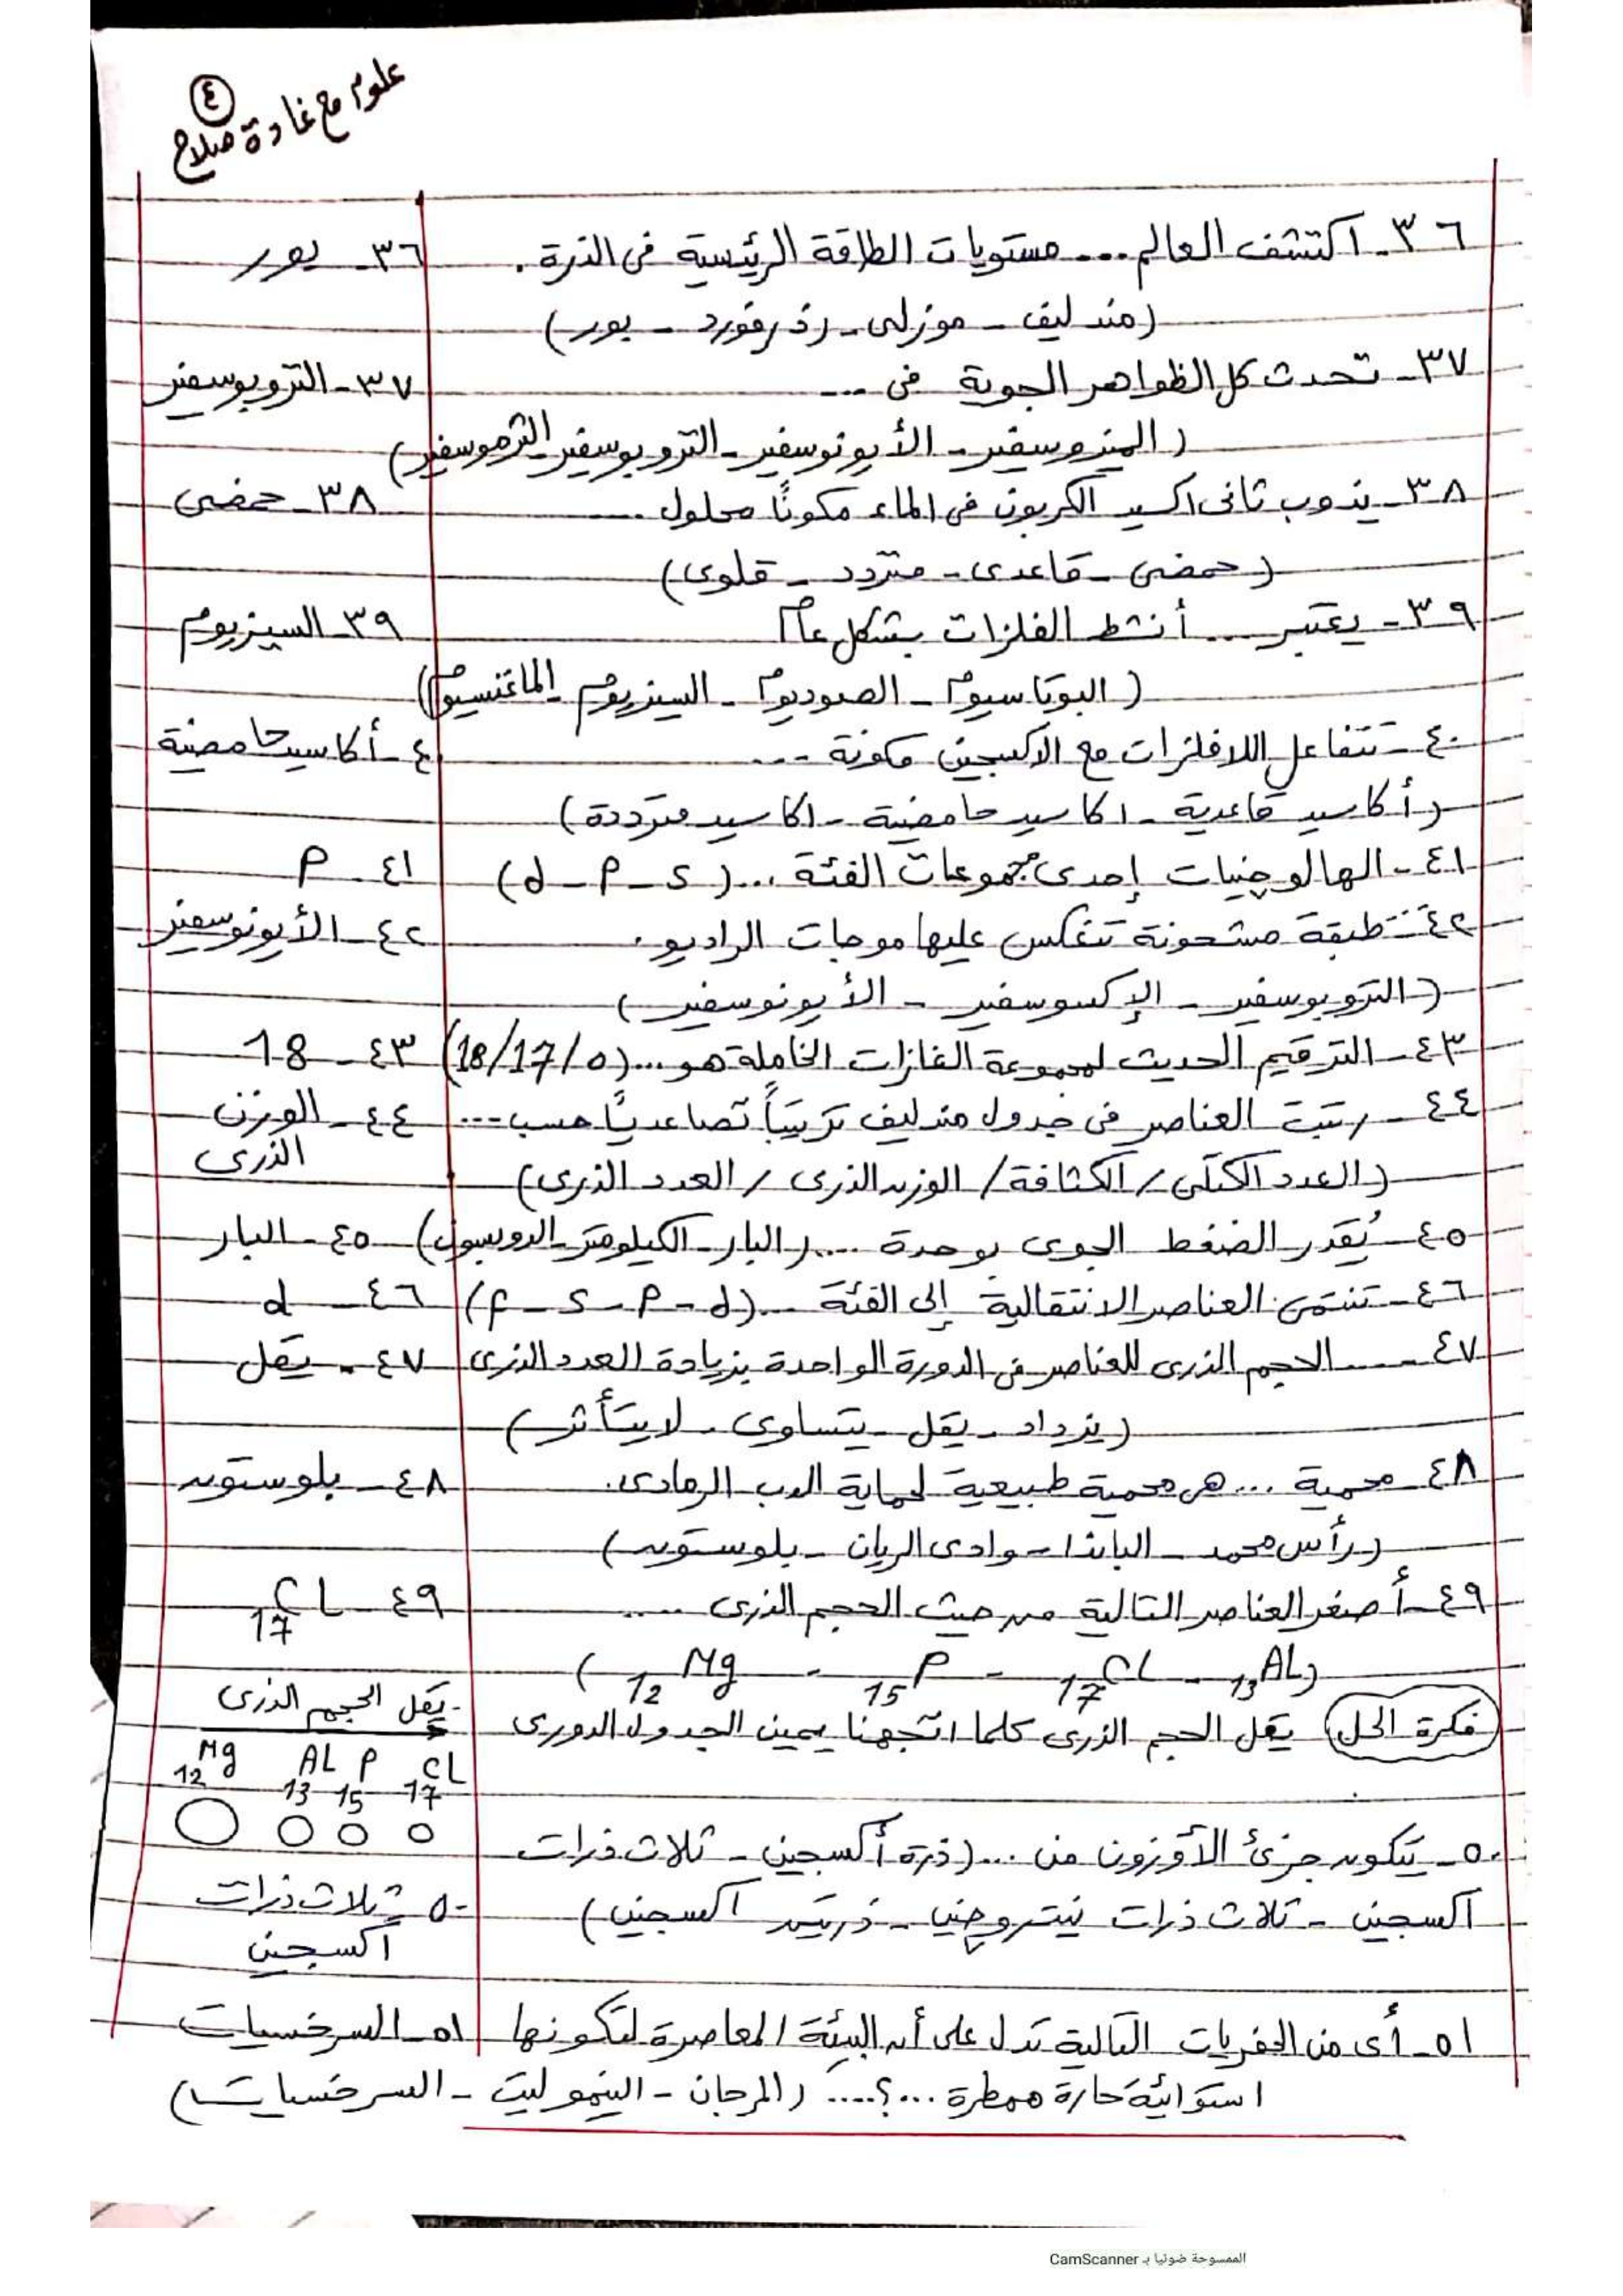 ٤
علوم مع غادة صلاح
٣٦- اكتشف العالم ... مستويات الطاقة الرئيسية فى الذرة .
٣٦- بور
(مندليف - موزلى - رذرفورد - بور)
٣٧- تحدث كل الظواهر الجوية فى ...
٣٧- التروبوسفير
(الميزوسفير - الأيونوسفير - التروبوسفير - الثرموسفير)
٣٨- يذوب ثانى اكسيد الكربون فى الماء مكونًا محلول ......
٣٨- حمضى
(حمضى - قاعدى - متردد - قلوى)
٣٩- يعتبر .... أنشط الفلزات بشكل عام
٣٩- السيزيوم
(البوتاسيوم - الصوديوم - السيزيوم - الماغنسيوم)
٤٠- تتفاعل اللافلزات مع الاكسجين مكونة ...
٤- أكاسيد حامضية
(أكاسيد قاعدية - اكاسيد حامضية - اكاسيد مترددة)
٤١- الهالوجينات إحدى مجموعات الفئة ... (d - P - s)
٤١- P
٤٢- طبقة مشحونة تنعكس عليها موجات الراديو .
٤٢- الأيونوسفير
(التروبوسفير - الإكسوسفير - الأيونوسفير)
٤٣- الترقيم الحديث لمجموعة الغازات الخاملة هو ... (18/17/0)
٤٣- 18
٤٤- رتبت العناصر فى جدول مندليف ترتيباً تصاعديًا حسب ...
٤٤- الوزن
الذرى
(العدد الكتلى / الكثافة / الوزن الذرى / العدد الذرى)
٤٥- يُقدر الضغط الجوى بوحدة .... (البار - الكيلومتر - الدوبسون)
٤٥- البار
٤٦- تنتمى العناصر الانتقالية إلى الفئة ... (f - s - P - d)
٤٦- d
٤٧- ..... الحجم الذرى للعناصر فى الدورة الواحدة بزيادة العدد الذرى
٤٧- يقل
(يزداد - يقل - يتساوى - لا يتأثر)
٤٨- محمية ... هى محمية طبيعية لحماية الدب الرمادى .
٤٨- يلوستون
(رأس محمد - الباندا - وادى الريان - يلوستون)
٤٩- أصغر العناصر التالية من حيث الحجم الذرى .....
٤٩- 17CL
(12Mg - 15P - 17CL - 13AL)
فكرة الحل يقل الحجم الذرى كلما اتجهنا يمين الجدول الدورى
يقل الحجم الذرى
12Mg 13AL 15P 17CL
٥٠- يتكون جزئ الأوزون من ... (ذرة أكسجين - ثلاث ذرات
اكسجين - ثلاث ذرات نيتروجين - ذرتين اكسجين)
٥٠- ثلاث ذرات
أكسجين
٥١- أى من الحفريات التالية تدل على أن البيئة المعاصرة لتكونها
٥١- السرخسيات
استوائية حارة ممطرة ...؟.... (المرجان - النيموليت - السرخسيات)
الممسوحة ضوئيا بـ CamScanner